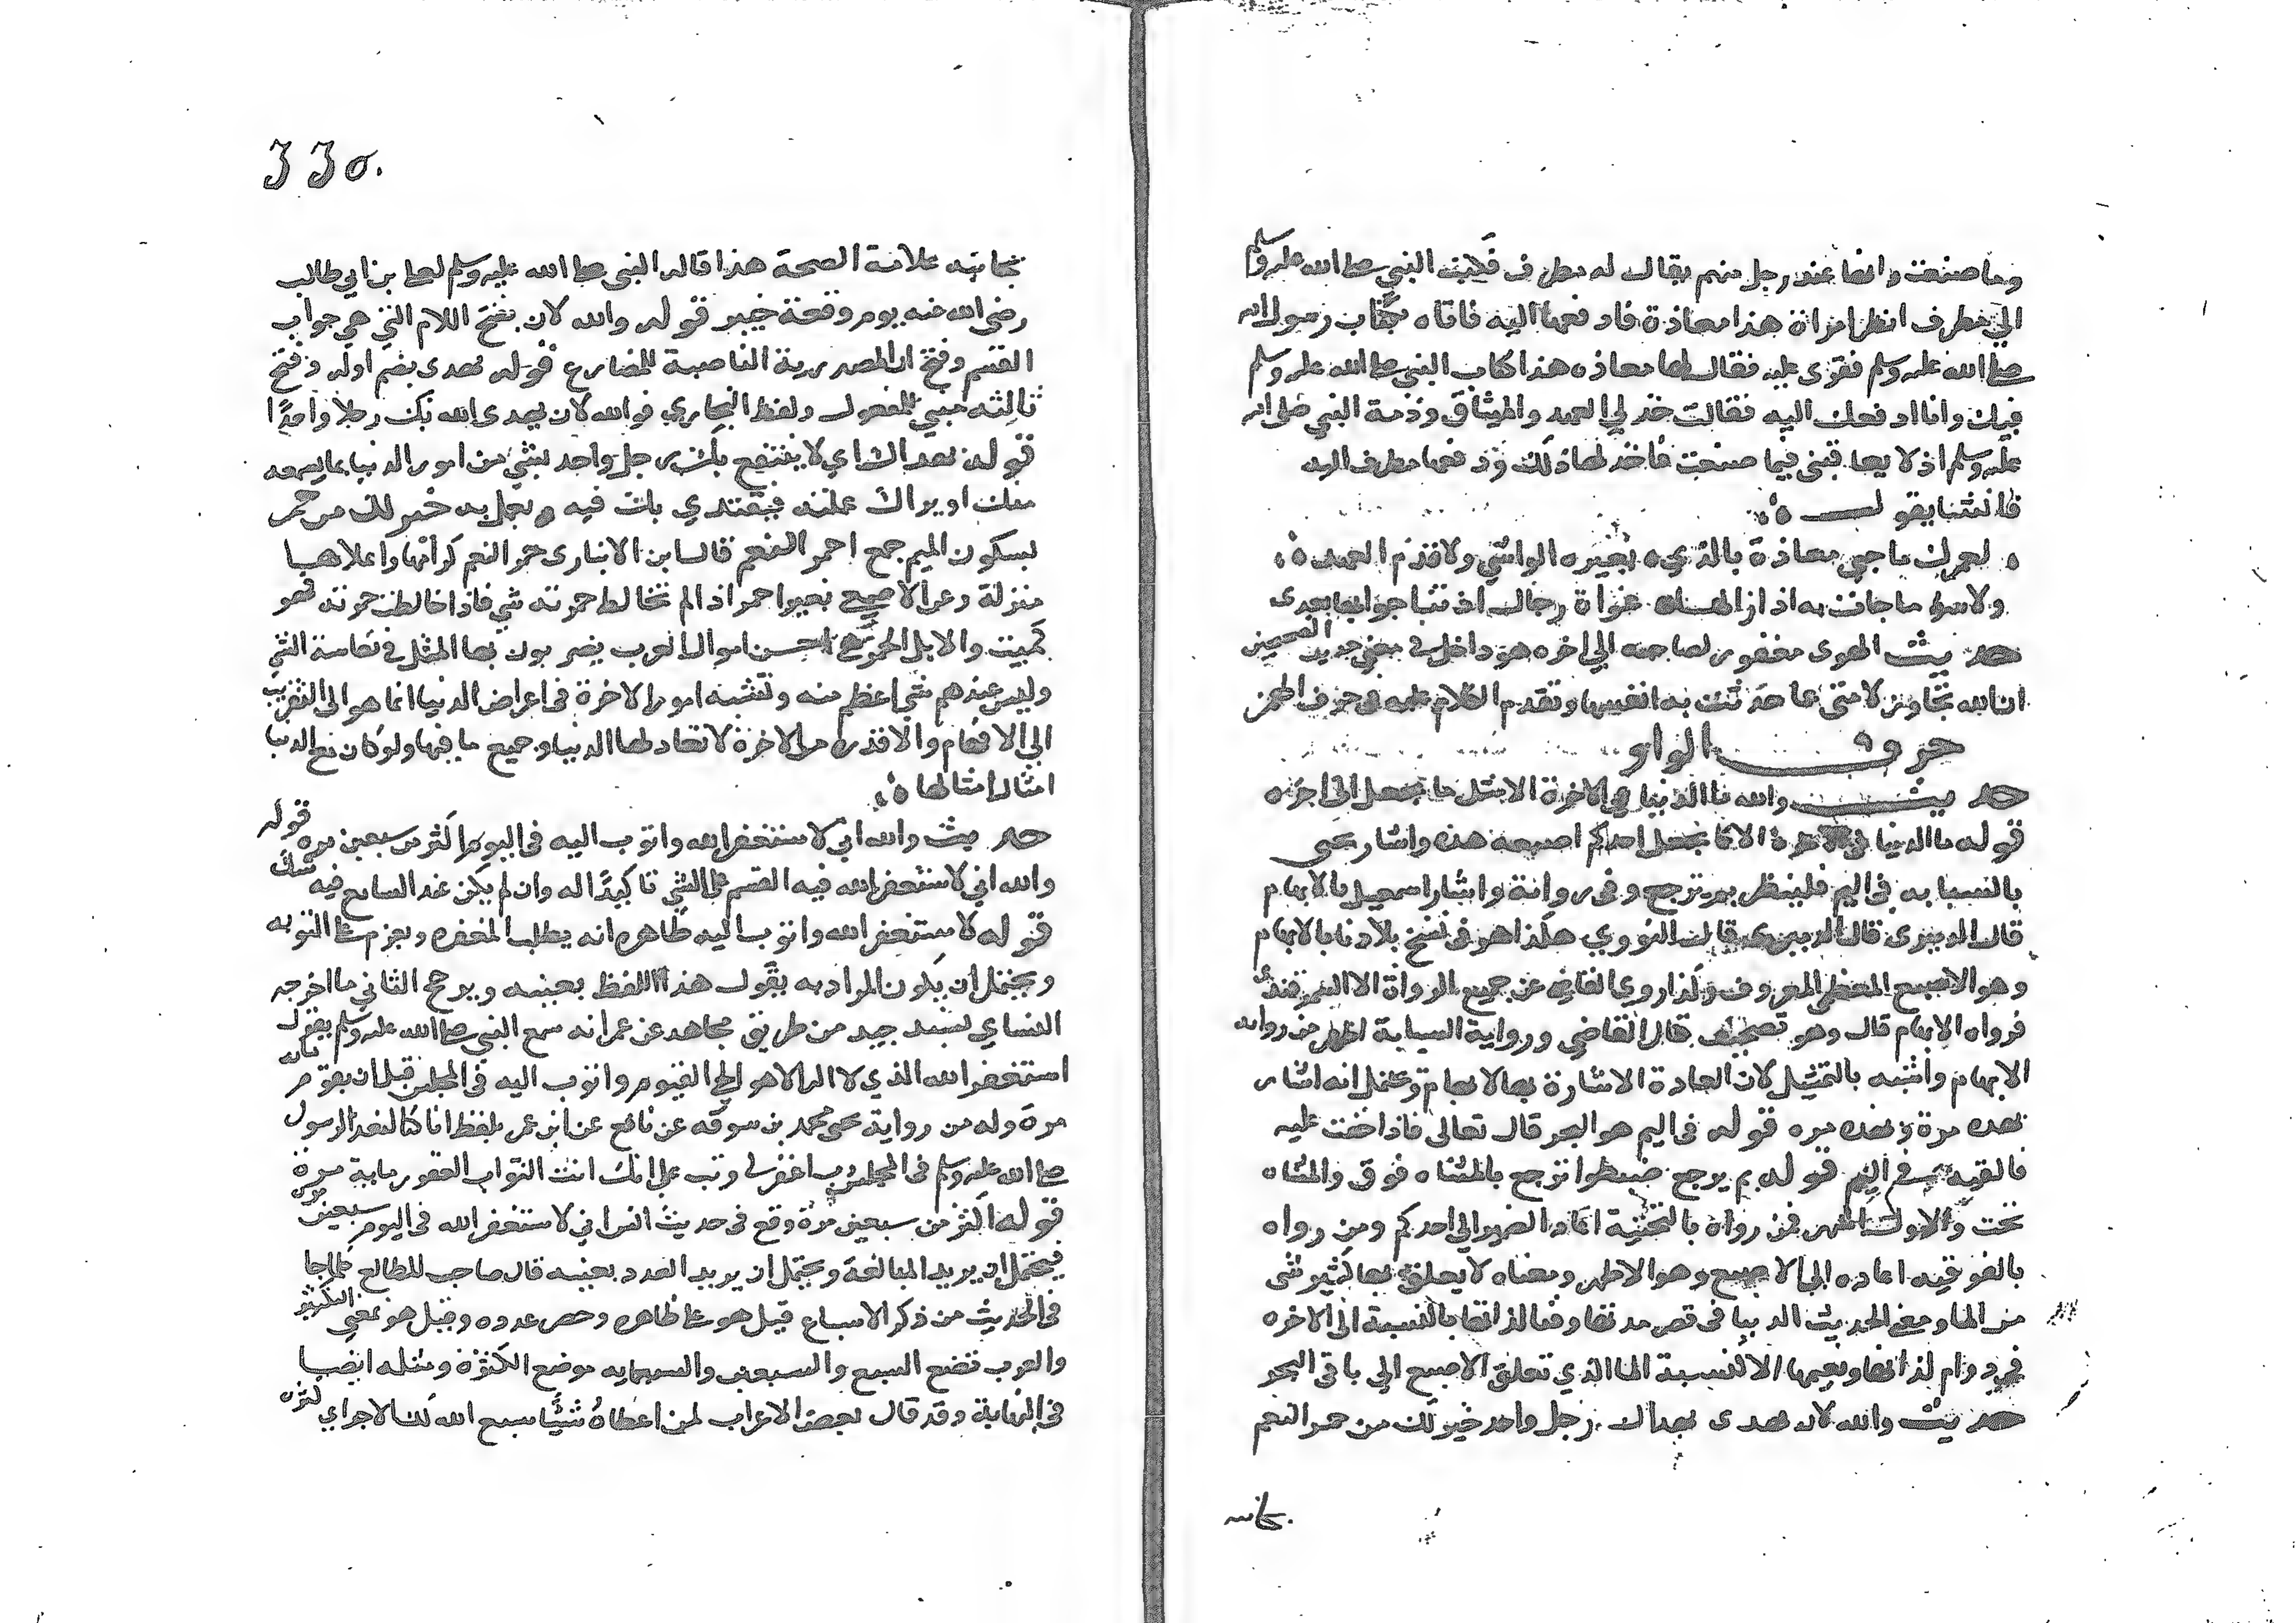 وما صنعت وانها عند رجل منهم يقال له مطرف فكتب النبي صلى الله عليه وسلم
الي مطرف انظر امراة هذا معاذة فادفعها اليه فاتاه بكتاب رسول الله
صلى الله عليه وسلم فقرى عليه فقال لها معاذه هذا كتاب النبي صلى الله عليه وسلم
فيك وانا ادفعك اليه فقالت خذ لي العهد والميثاق وذمة النبي صلى الله
عليه وسلم ان لا يعاقبني فيما صنعت فاخذ لها ذلك ودفعها مطرف اليه
فانشا يقول
لعمرك ما حبي معاذة بالذي ه يغيره الواشي ولا قدم العهد ه
ولا سوء ما جاءت به اذ ازالها غواة رجال اذ بعدى
حديث الهوى مغفور لصاحبه الي اخره هو داخل في معني حديث
ان الله تجاوز لامتي عما حدثت به انفسها وتقدم الكلام عليه في حرف الهمز
حرف الواو
حديث والله ما الدنيا في الاخرة الا مثل ما يجعل الى اخره
قوله ما الدنيا في الاخرة الا كما يجعل احدكم اصبعه هذه واشار يحيى
بالسبابه في اليم فلينظر بم ترجع وفي رواية واشار اسمعيل بالابهام
قال الدميرى قال النووي هكذا هو في نسخ بلادنا بالابهام
وهو الاصبع العظمى المعروف وكذا روي القاضي عن جميع الرواة الا السمرقندي
فرواه الابهام قال وهو تصحيف قال القاضي ورواية السبابة اظهر من رواية
الابهام واشبه بالتمثيل لان العادة الاشارة بها لا بالابهام ويحتمل انه اشار
بهذه مرة وبهذه مره قوله في اليم هو البحر قال تعالى فاذا خفت عليه
فالقيه في اليم قوله بم يرجع ضبطوا ترجع بالمثناه فوق والمثناه
تحت والاول اشهر فمن رواه بالتحتية اعاد الضمير الي احدكم ومن رواه
بالفوقيه اعاده الي الاصبع وهو الاظهر ومعناه لا يعلق بها كثير شي
من الما ومعنى الحديث الدنيا في قصر مدتها وفنا لذاتها بالنسبة الى الاخره
في دوام لذاتها ونعيمها الا كنسبة الما الذي تعلق الاصبع الي باقي البحر
حديث والله لان يهدى بهداك رجل واحد خير لك من حمر النعم
بجانبه
330.
بجانبه علامة الصحة هذا قاله النبي صلى الله عليه وسلم لعلي بن ابي طالب
رضي الله عنه يوم وقعة خيبر قوله والله لان بفتح اللام التي هي جواب
القسم وفتح ان المصدرية الناصبة للمضارع قوله يهدى بضم اوله وفتح
ثالثه مبني للمفعول ولفظ البخاري فوالله لان يهدى الله بك رجلا واحدا
قوله بهداك اي لا ينتفع بك رجل واحد بشي من امور الدنيا بما يسمعه
منك او يراك عملته فيقتدي بك فيه ويعمل به خير لك من حمر
بسكون الميم جمع احمر النعم قال ابن الانبارى حمر النعم كرائمها واعلاها
منزلة وعن الاصمعي بعير احمر اذا لم تخالط حمرته شي فاذا خالطت حمرته فهو
كميت والابل الحمر هي احسن اموال العرب يضربون بها المثل في نفاسة الشي
وليس عندهم شي اعظم منه وتشبيه امور الاخرة في اعراض الدنيا انما هو الى التقريب
الي الافهام والا فذرة من الاخرة لا تعادلها الدنيا وجميع ما فيها ولو كان مع الدنيا
امثال امثالها ه
حديث والله اني لاستغفر الله واتوب اليه في اليوم اكثر من سبعين مره قوله
والله اني لاستغفر الله فيه القسم على الشي تاكيدا له وان لم يكن عند السامع فيه شك
قوله لاستغفر الله واتوب اليه ظاهره انه يطلب المغفره ويعزم على التوبه
ويحتمل ان يكون المراد به يقول هذا اللفظ بعينه ويرجح الثاني ما اخرجه
النساي بسند جيد من طريق مجاهد عن عمر انه سمع النبي صلى الله عليه وسلم يقول
استغفر الله الذي لا اله الا هو الحي القيوم واتوب اليه في المجلس قبل ان يقوم مايه
مرة وله من رواية محمد بن سوقه عن نافع عن ابن عمر بلفظ انا كنا لنعد لرسول
صلى الله عليه وسلم في المجلس رب اغفر لي وتب علي انك انت التواب الغفور ماية مرة
قوله اكثر من سبعين مرة وقع في حديث انس اني لاستغفر الله في اليوم سبعين مرة
فيحتمل ان يريد المبالغة ويحتمل ان يريد العدد بعينه قال صاحب المطالع كلما جا
في الحديث من ذكر الاسباع قيل هو على ظاهره وحصر عدده وقيل هو بمعنى التكثير
والعرب تضع السبع والسبعين والسبعمايه موضع الكثرة ومثله ايضا
في النهاية وقد قال بعض الاعراب لمن اعطاه شيئا سبع الله لك الاجر اي كثره